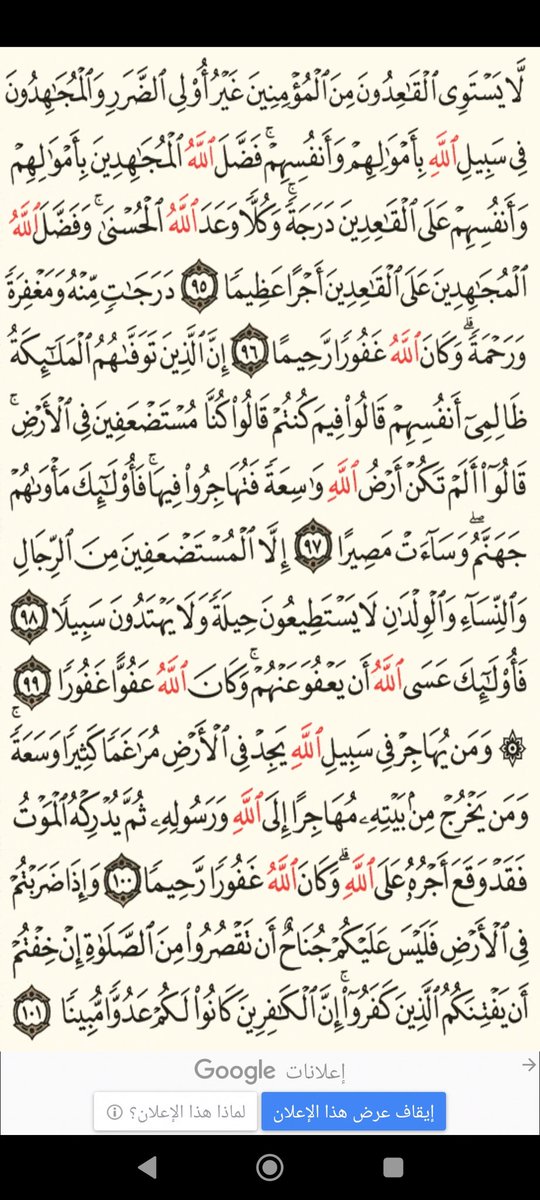 لَّا يَسۡتَوِي ٱلۡقَٰعِدُونَ مِنَ ٱلۡمُؤۡمِنِينَ غَيۡرُ أُوْلِي ٱلضَّرَرِ وَٱلۡمُجَٰهِدُونَ
فِي سَبِيلِ ٱللَّهِ بِأَمۡوَٰلِهِمۡ وَأَنفُسِهِمۡۚ فَضَّلَ ٱللَّهُ ٱلۡمُجَٰهِدِينَ بِأَمۡوَٰلِهِمۡ
وَأَنفُسِهِمۡ عَلَى ٱلۡقَٰعِدِينَ دَرَجَةٗۚ وَكُلّٗا وَعَدَ ٱللَّهُ ٱلۡحُسۡنَىٰۚ وَفَضَّلَ ٱللَّهُ
ٱلۡمُجَٰهِدِينَ عَلَى ٱلۡقَٰعِدِينَ أَجۡرًا عَظِيمٗا ٩٥ دَرَجَٰتٖ مِّنۡهُ وَمَغۡفِرَةٗ
وَرَحۡمَةٗۚ وَكَانَ ٱللَّهُ غَفُورٗا رَّحِيمًا ٩٦ إِنَّ ٱلَّذِينَ تَوَفَّىٰهُمُ ٱلۡمَلَٰٓئِكَةُ
ظَالِمِيٓ أَنفُسِهِمۡ قَالُواْ فِيمَ كُنتُمۡۖ قَالُواْ كُنَّا مُسۡتَضۡعَفِينَ فِي ٱلۡأَرۡضِۚ
قَالُوٓاْ أَلَمۡ تَكُنۡ أَرۡضُ ٱللَّهِ وَٰسِعَةٗ فَتُهَاجِرُواْ فِيهَاۚ فَأُوْلَٰٓئِكَ مَأۡوَىٰهُمۡ
جَهَنَّمُۖ وَسَآءَتۡ مَصِيرًا ٩٧ إِلَّا ٱلۡمُسۡتَضۡعَفِينَ مِنَ ٱلرِّجَالِ
وَٱلنِّسَآءِ وَٱلۡوِلۡدَٰنِ لَا يَسۡتَطِيعُونَ حِيلَةٗ وَلَا يَهۡتَدُونَ سَبِيلٗا ٩٨
فَأُوْلَٰٓئِكَ عَسَى ٱللَّهُ أَن يَعۡفُوَ عَنۡهُمۡۚ وَكَانَ ٱللَّهُ عَفُوًّا غَفُورٗا ٩٩
۞ وَمَن يُهَاجِرۡ فِي سَبِيلِ ٱللَّهِ يَجِدۡ فِي ٱلۡأَرۡضِ مُرَٰغَمٗا كَثِيرٗا وَسَعَةٗۚ
وَمَن يَخۡرُجۡ مِنۢ بَيۡتِهِۦ مُهَاجِرًا إِلَى ٱللَّهِ وَرَسُولِهِۦ ثُمَّ يُدۡرِكۡهُ ٱلۡمَوۡتُ
فَقَدۡ وَقَعَ أَجۡرُهُۥ عَلَى ٱللَّهِۗ وَكَانَ ٱللَّهُ غَفُورٗا رَّحِيمٗا ١٠٠ وَإِذَا ضَرَبۡتُمۡ
فِي ٱلۡأَرۡضِ فَلَيۡسَ عَلَيۡكُمۡ جُنَاحٌ أَن تَقۡصُرُواْ مِنَ ٱلصَّلَوٰةِ إِنۡ خِفۡتُمۡ
أَن يَفۡتِنَكُمُ ٱلَّذِينَ كَفَرُوٓاْۚ إِنَّ ٱلۡكَٰفِرِينَ كَانُواْ لَكُمۡ عَدُوّٗا مُّبِينٗا ١٠١
إعلانات Google
إيقاف عرض هذا الإعلان
لماذا هذا الإعلان؟